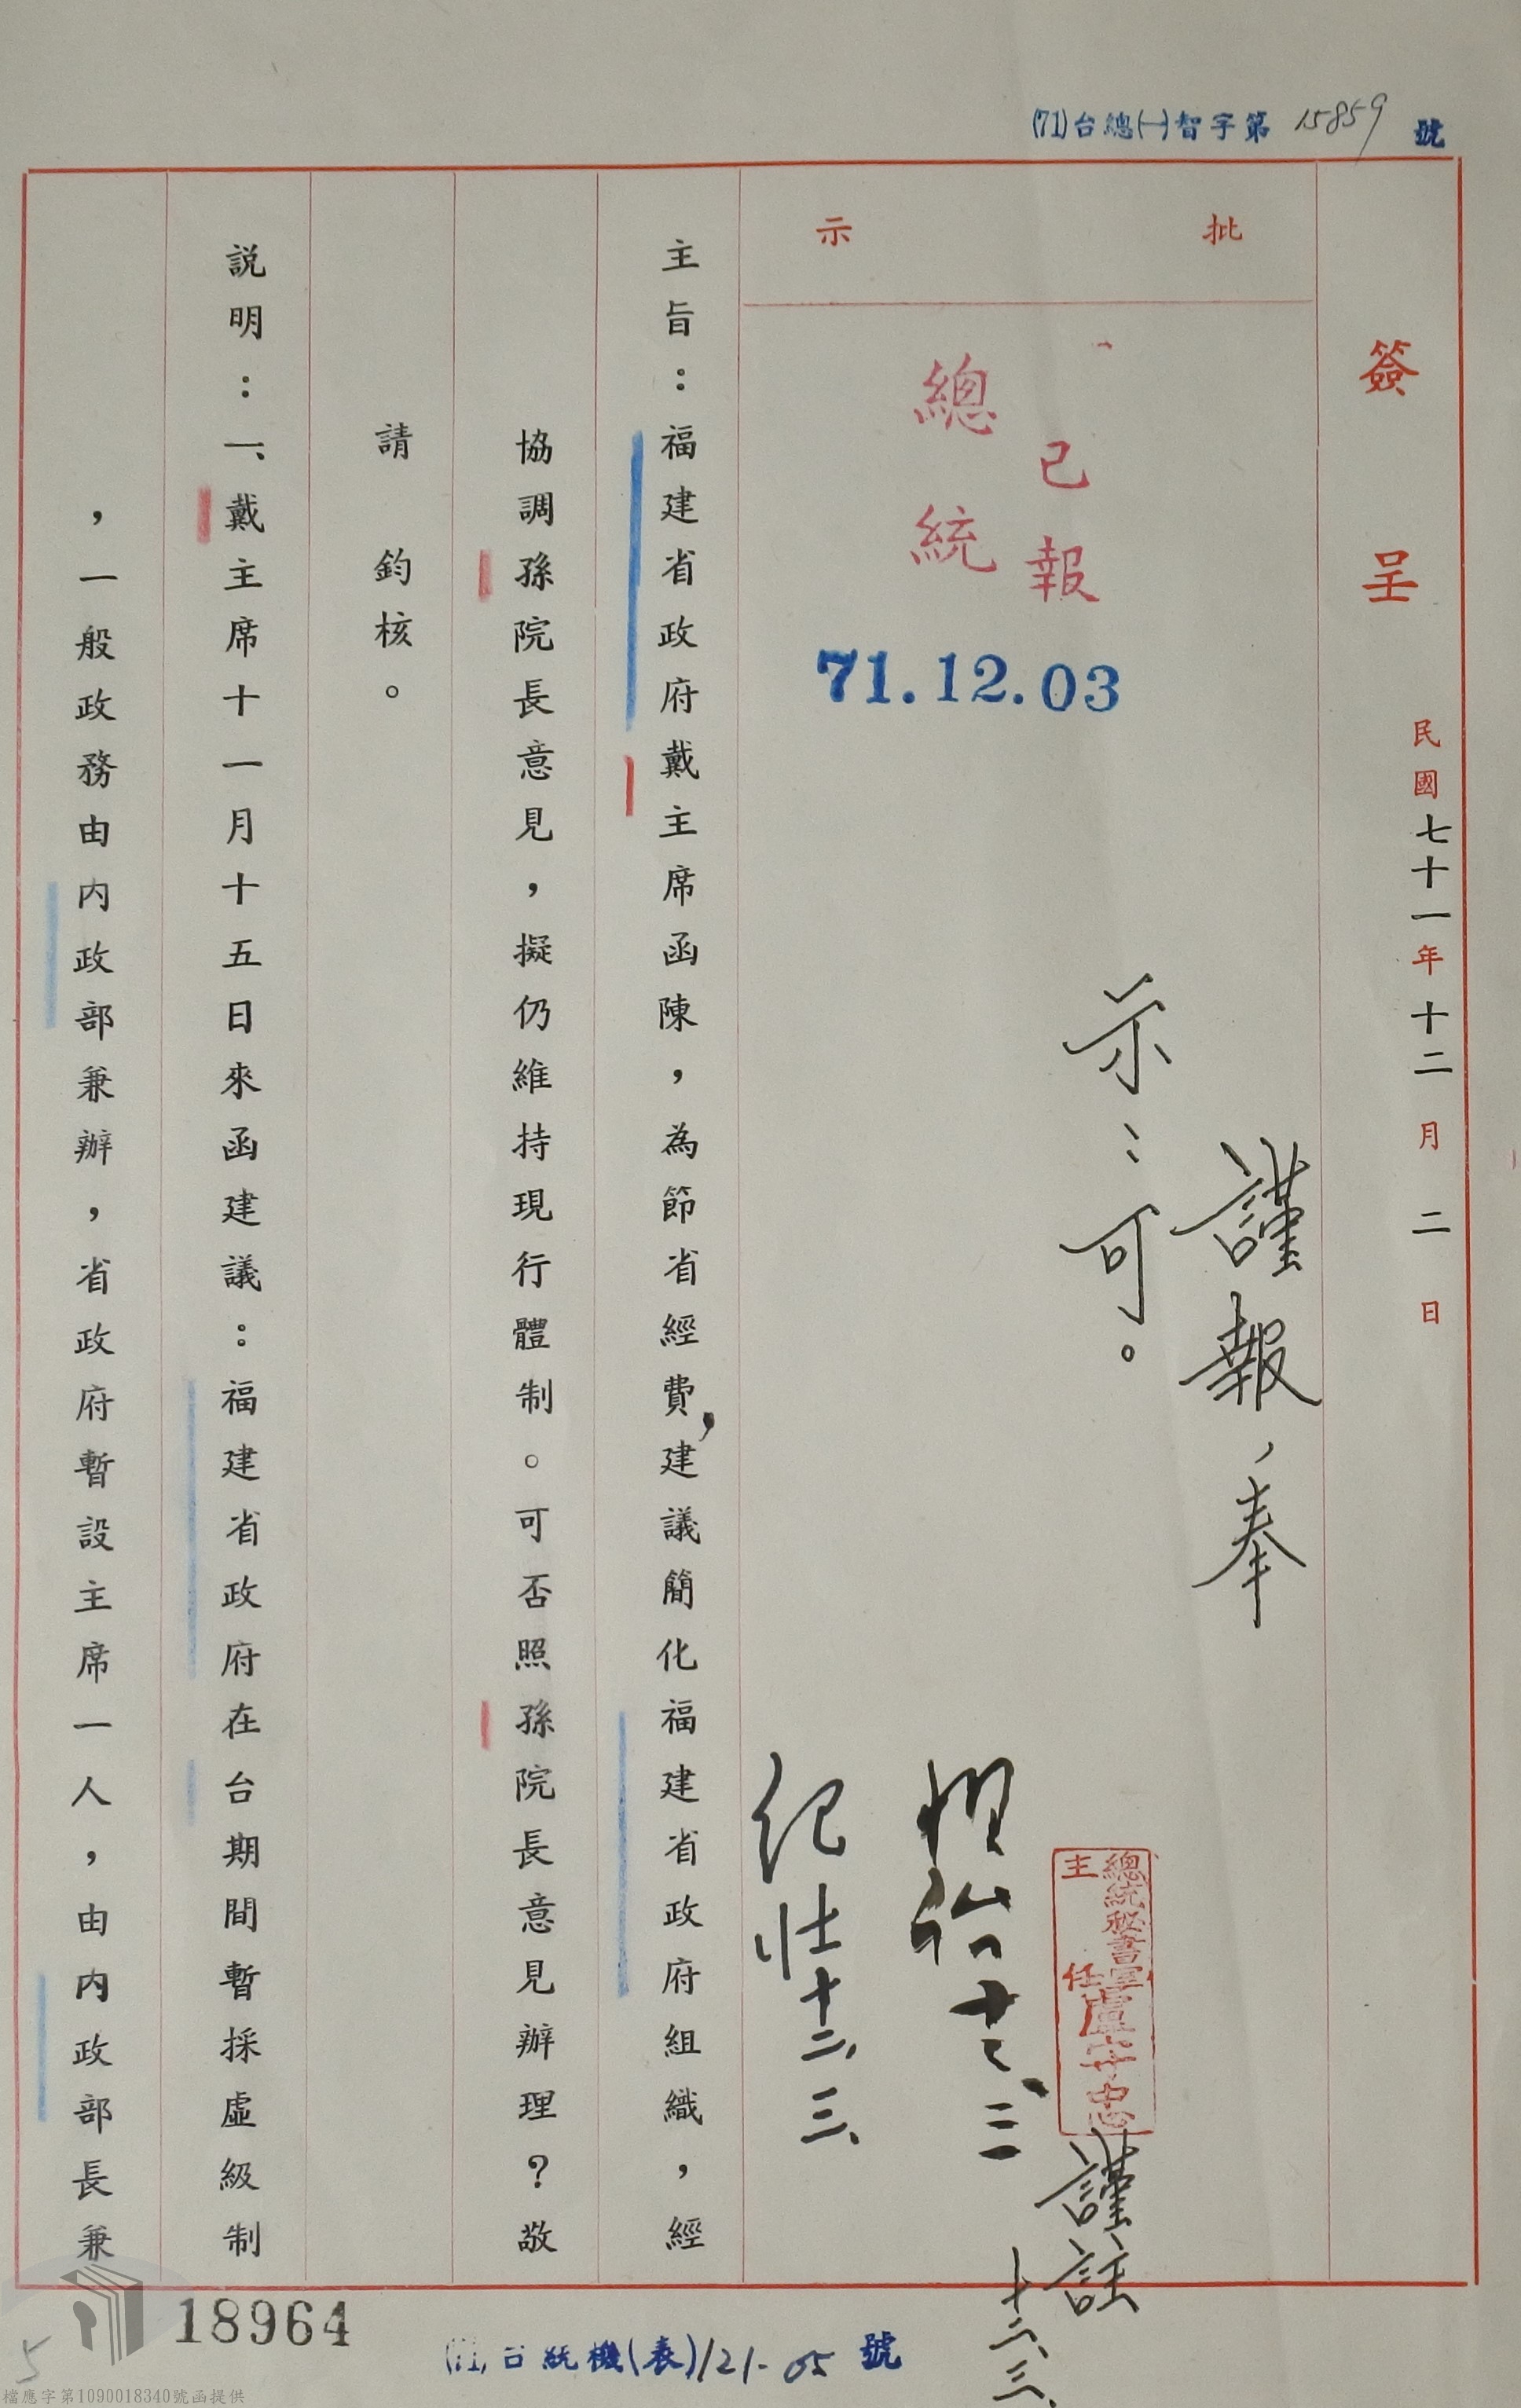 (71)台總㈠智字第15859號
簽呈
民國七十一年十二月二日
批示
謹報、奉
示:可。
已報
總統
71.12.03
總統秘書室
主任
盧守忠
謹註
十二、三、
十二、三
紀壯十二、三、
主旨:福建省政府戴主席函陳,為節省經費,建議簡化福建省政府組織,經
協調孫院長意見,擬仍維持現行體制。可否照孫院長意見辦理?敬
請 鈞核。
説明:一、戴主席十一月十五日來函建議:福建省政府在台期間暫採虛級制
,一般政務由內政部兼辦,省政府暫設主席一人,由內政部長兼
18964
(71)台統機(表)121-05號
5
檔應字第1090018340號函提供